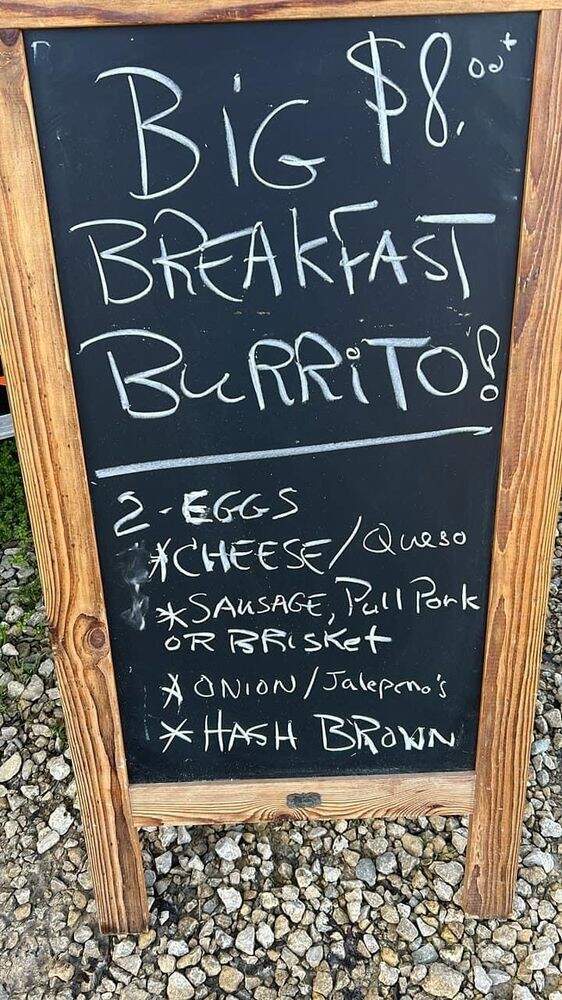 BiG $8.00+
BREAKFAST
BuRRiTO!
2 - EGGS
*CHEESE/Queso
*SAUSAGE, Pull Pork
OR BRISKET
* ONION/Jalepeno's
* HASH BROWN